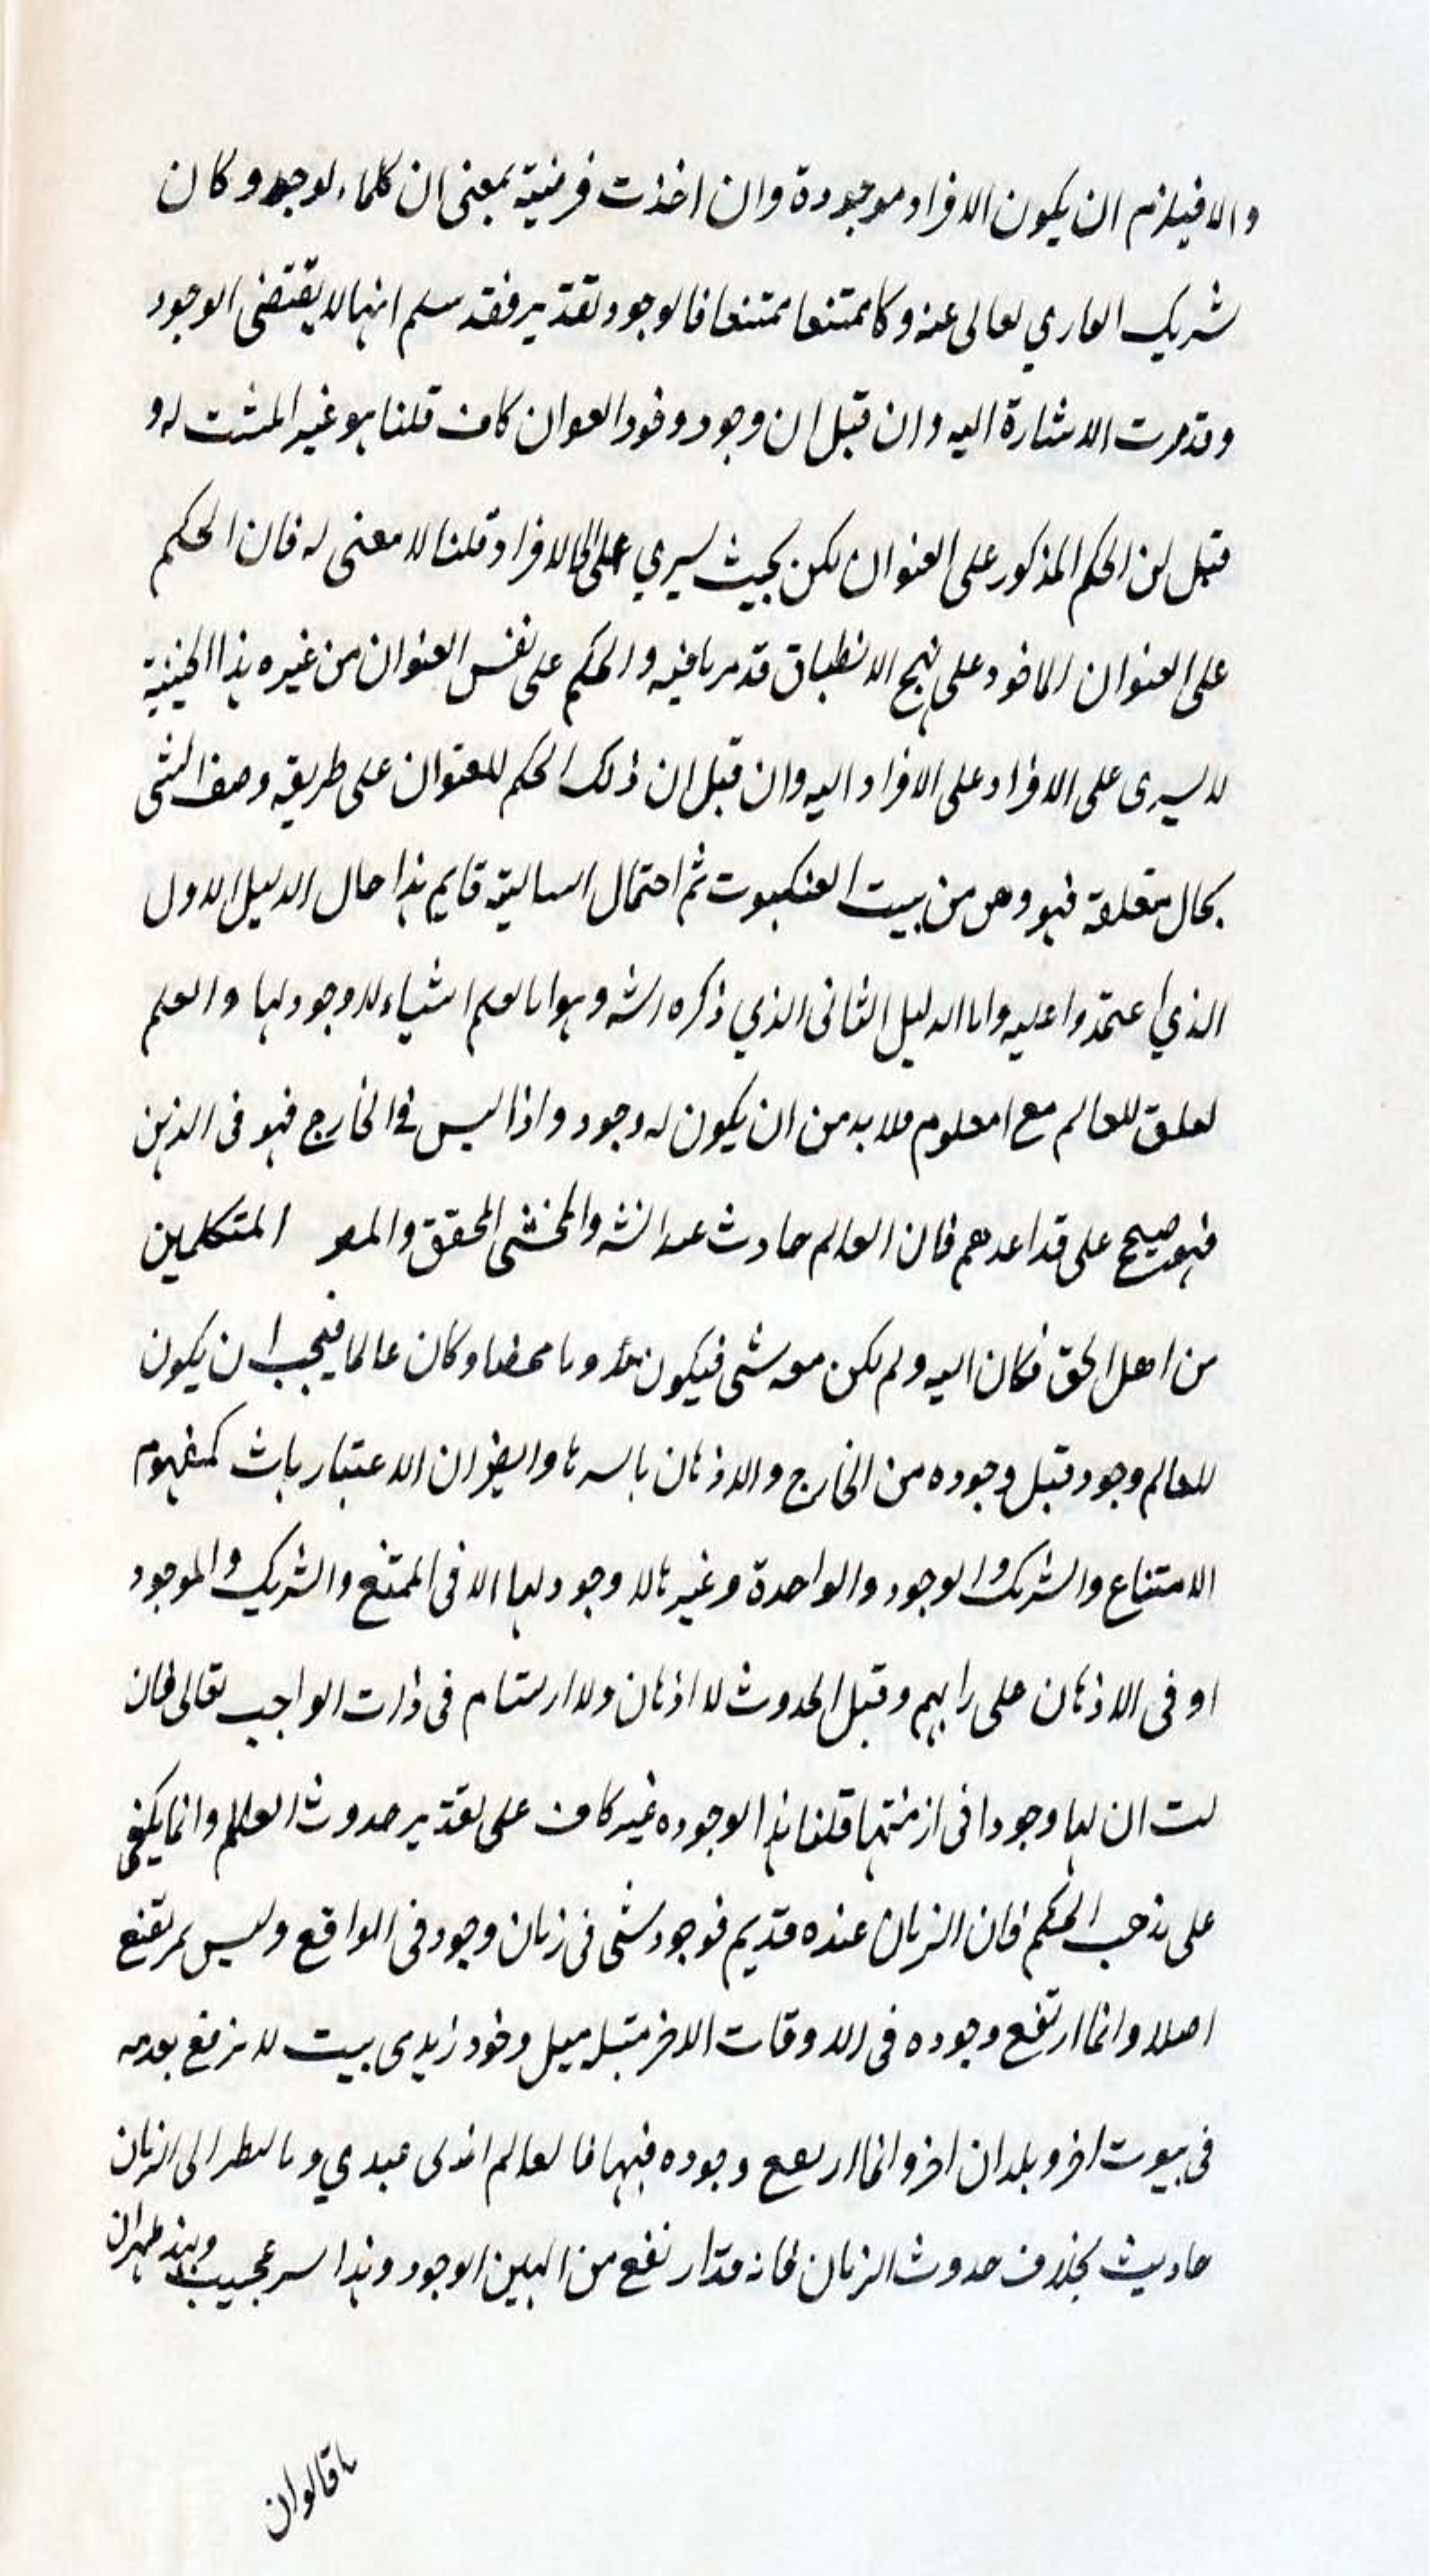 والا فيلزم ان يكون الافراد موجودة وان اخذت فرضية بمعنى ان كلما لو وجد وكان
شريك الباري تعالى عنه وكا ممتنعا ممتنعا فالوجود تقديري فقد سلم انها لا يقتضى الوجود
وقد مرت الاشارة اليه وان قيل ان وجود العنوان كاف قلنا هو غير المثبت له و
قيل ان الحكم المذكور على العنوان لكن بحيث يسري على الافراد قلنا لا معنى له فان الحكم
على العنوان الماخوذ على نهج الانطباق قد مر ما فيه والحكم على نفس العنوان من غيره هذا الحيثية
لا يسرى على الافراد على الافراد اليه وان قيل ان ذلك الحكم للعنوان على طريقه وصف الشئ
بحال متعلقه فهو وهن من بيت العنكبوت ثم احتمال السالبة قايم هذا حال الدليل الاول
الذي اعتمدوا عليه واما الدليل الثانى الذي ذكره الشه وهو انا نعلم اشياء لا وجود لها والعلم
تعلق للعالم مع امعلوم فلا بد من ان يكون له وجود واذا ليس فى الخارج فهو فى الذهن
فهو صحيح على قداعدهم فان العالم حادث عند الشه والمحشى المحقق والمص المتكلمين
من اهل الحق فكان اليه ولم يكن معه شئ فيكون معدوما محضا وكان عالما فيجب ان يكون
للعالم وجود قبل وجوده من الخارج والاذهان باسرها وايضا ان الاعتبار يات كمفهوم
الامتناع والشرك والوجود والواحدة وغيرها لا وجود لها الا فى الممتنع والشريك والموجود
او فى الاذهان على رايهم وقبل الحدوث لا اذهان ولا ارتسام فى ذات الواجب تعالى فان
لت ان لها وجودا فى ازمنتها قلنا هذا الوجوده غير كاف على تقدير حدوث العالم وانما يكفى
على مذهب الحكم فان الزمان عنده قديم فوجود شئ فى زمان وجود فى الواقع وليس مرتفع
اصلا وانما ارتفع وجوده فى الاوقات الاخر وجود زيد فى بيت لا يرفع بعدمه
فى بيوت اخر وبلدان اخر وانما ارتفع وجوده فيها فالعالم وبالنظر الى الزمان
حاديث بخلاف حدوث الزمان فانه قد ارتفع من البين الوجود وهذا سر عجيب وبهذ ظهر ان
ما قالوا ان